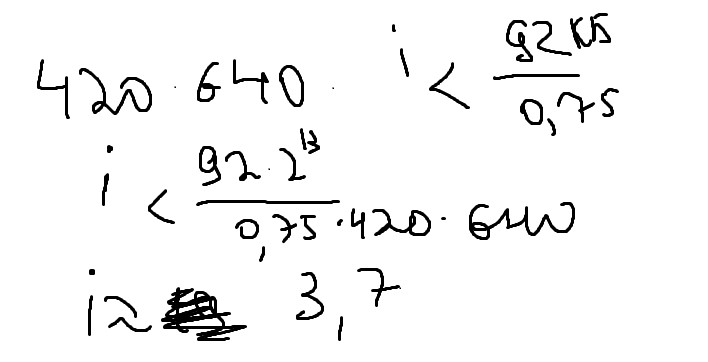 420 · 640 · i < 92 КБ / 0,75
i < 92 · 2¹³ / 0,75 · 420 · 640
i ≈ 3,7